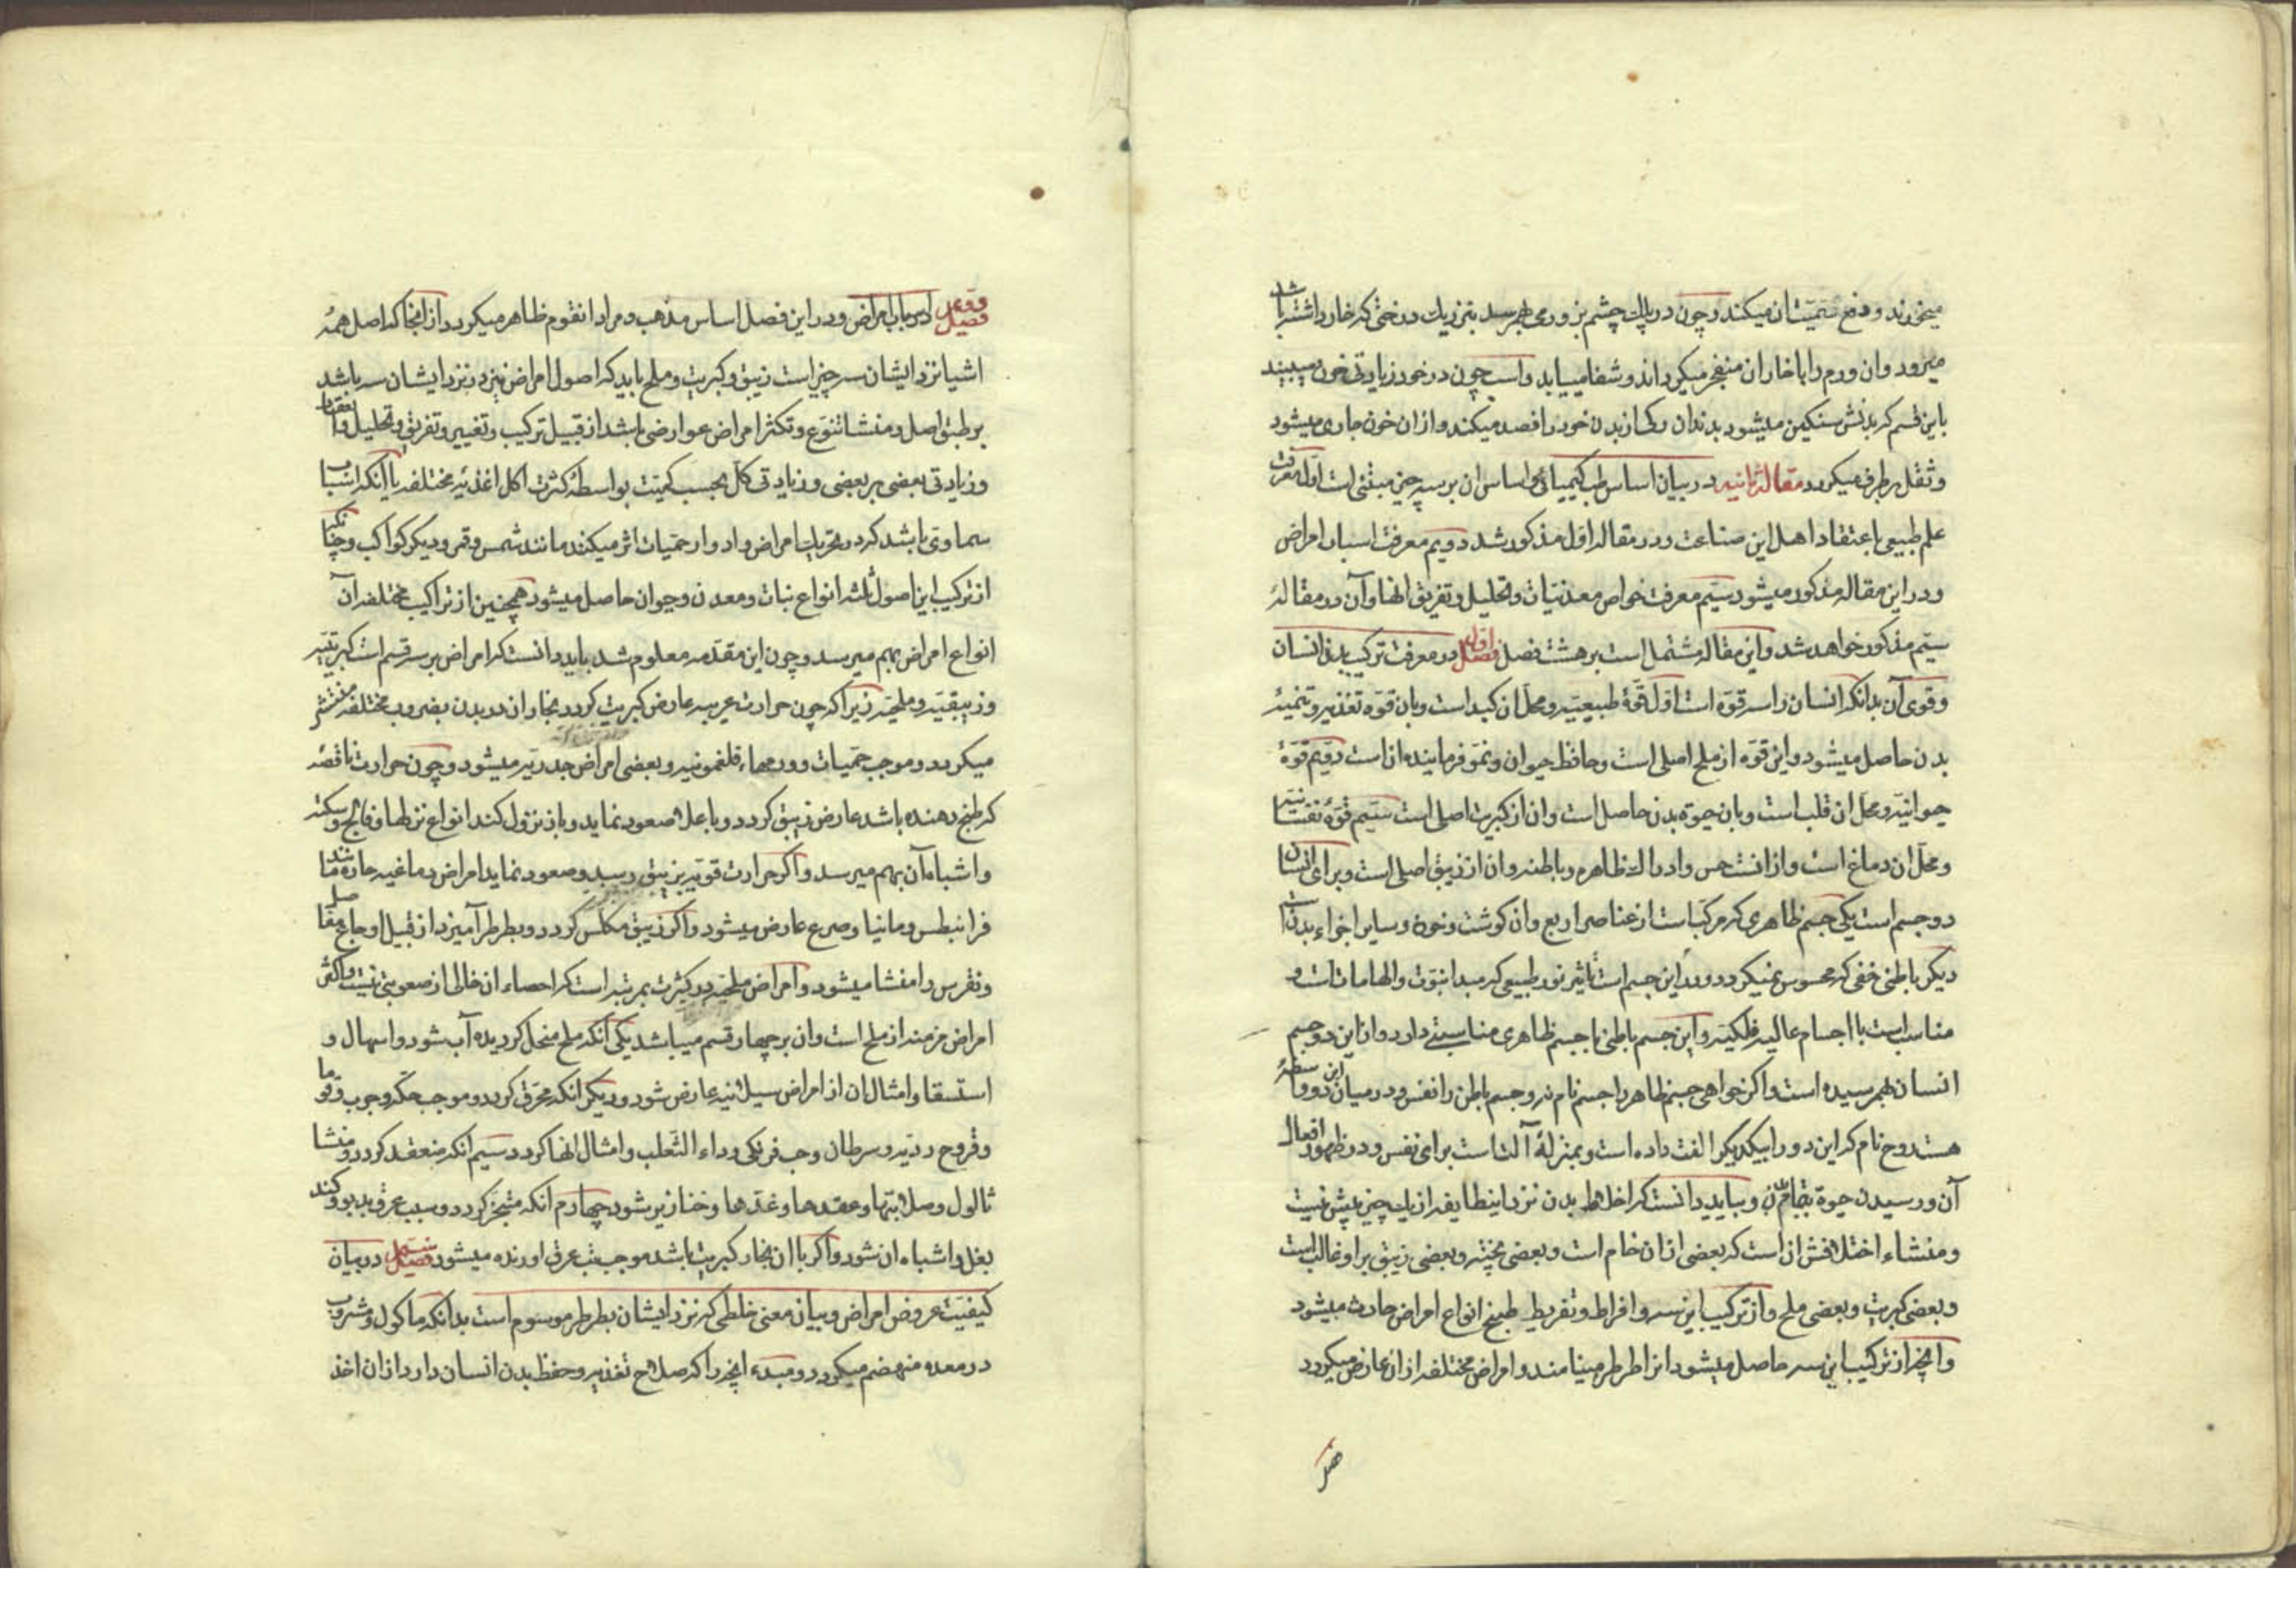 میخورند و دفع سمّیتشان میکند و چون در پلک چشم بز ورمی بهم رسد بنزدیک درختی که خار داشته باشد
میرود و ان ورم را با خار ان منفجر میکرداند و شفا مییابد و اسب چون در خود زیادتی خون میبیند
باین قسم که بدنش سنکین میشود بدندان رکی از بدن خود را فصد میکند و از ان خون جاری میشود
و ثقل برطرف میکردد مقاله ثانیه در بیان اساس طب کیمیائی و اساس ان بر سه چیز مبتنی است اول معرفت
علم طبیعی باعتقاد اهل این صناعت و در مقاله اول مذکور شد دویم معرفت اسباب امراض
و در این مقاله مذکور میشود سیّم معرفت خواص معدنیّات و تحلیل و تفریق انها و آن در مقالهٔ
سیّم مذکور خواهد شد و این مقاله مشتمل است بر هشت فصل فصل اول در معرفت ترکیب بدن انسان
و قوی آن بدانکه انسان را سه قوّه است اول قوّهٔ طبیعیّه و محلّ ان کبد است و بان قوّه تغذیه و تنمیهٔ
بدن حاصل میشود و این قوّه از ملح اصلی است و حافظ حیوان و نموّ فرماینده انست دویّم قوّهٔ
حیوانیّه و محلّ ان قلب است و بان حیوة بدن حاصل است و ان از کبریت اصلی است سیّم قوّهٔ نفسانیّه
و محلّ ان دماغ است و از انست حس و ادراک ظاهره و باطنه و ان از زیبق اصلی است و برای انسان
دو جسم است یکی جسم ظاهری که مرکّب است از عناصر اربع و ان کوشت و خون و سایر اجزاء بدنست
دیکر باطنی خفی که محسوس نمیکردد و در این جسم است تأثیر نور طبیعی که مبدا نبوّت و الهامات است و
مناسب است با اجسام عالیه فلکیّه و این جسم باطنی با جسم ظاهری مناسبتی دارد و از این دو جسم
انسان بهم رسیده است و اکر خواهی جسم ظاهر را جسم نام نه و جسم باطن را نفس و در میان این دو واسطهٔ
هست روح نام که این دو را بیکدیکر الفت داده است و بمنزلهٔ آلت است برای نفس و در ظهور افعال
آن و رسیدن حیوة بتمام بدن و بباید دانست که اخلاط بدن نزد اینطایفه از یک چیز بیش نیست
و منشاء اختلافش ان است که بعضی از ان خام است و بعضی پخته و بعضی زیبق بر او غالب است
و بعضی کبریت و بعضی ملح و از ترکیب این سه و افراط و تفریط طبخ انواع امراض حادث میشود
و انچه از ترکیب این سه حاصل میشود انرا طرطر مینامند و امراض مختلفه از ان عارض میکردد
فصل دوم در اسباب امراض و در این فصل اساس مذهب و مراد انقوم ظاهر میکردد از انجا که اصل همهٔ
اشیا نزد ایشان سه چیز است زیبق و کبریت و ملح باید که اصول امراض نیز در نزد ایشان سه باشد
بر طبق اصل و منشا تنوّع و تکثر امراض عوارضی باشد از قبیل ترکیب و تغییر و تفریق و تحلیل و انعقاد
و زیادتی بعضی بر بعضی و زیادتی کلّ بحسب کمیّت بواسطهٔ کثرت اکل اغذیهٔ مختلفه یا آنکه اسباب
سماوی باشد که در تحریک امراض و ادوار حمیّات اثر میکنند مانند شمس و قمر و دیکر کواکب و چنانکه
از ترکیب این اصول ثلثه انواع نبات و معدن و حیوان حاصل میشود همچنین از تراکیب مختلفه آن
انواع امراض بهم میرسد و چون این مقدّمه معلوم شد باید دانست که امراض بر سه قسم است کبریتیّه
و زیبقیّه و ملحیّه زیرا که چون حرارت غریبه عارض کبریت کردد بخار ان در بدن بضروب مختلفه منتشر
میکردد و موجب حمّیات و ورمهاء فلغمونیه و بعضی امراض جدریّه میشود و چون حرارت ناقصه
که طبخ دهنده باشد عارض زیبق کردد و باعلا صعود نماید و باز نزول کند انواع نزلها و فالج و سکته
و اشباه آن بهم میرسد و اکر حرارت قویّه بزیبق رسید و صعود نماید امراض دماغیه حارّه مانند
فرانیطس و مانیا و صرع عارض میشود و اکر زیبق مکلّس کردد و بطرطر آمیزد از قبیل اوجاع مفاصل
و نقرس را منشا میشود و امراض ملحیّه در کثرت بمرتبه است که احصاء ان خالی از صعوبتی نیست و اکثر
امراض مزمنه از ملح است و ان بر چهار قسم میباشد یکی آنکه ملح منحلّ کردیده آب شود و اسهال و
استسقا و امثال ان از امراض سیلانیه عارض شود و دیکر انکه محرق کردد و موجب حکّه و جرب و قوبا
و قروح ردیّه و سرطان و حب فرنکی و داء الثّعلب و امثال انها کردد سیّم انکه منعقد کردد و منشا
ثالول و صلابتها و عقدها و غدّها و خنازیر شود چهارم انکه متبخّر کردد و سبب عرق بدبو و کند
بغل و اشباه ان شود و اکر با ان بخار کبریت باشد موجب تب عرق اورنده میشود فصل سیم در بیان
کیفیّت عروض امراض و بیان معنی خلطی که نزد ایشان بطرطر موسوم است بدانکه ماکول و مشروب
در معده منهضم میکردد و مبدء انچه را که صلاح تغذیه و حفظ بدن انسان دارد از ان اخذ